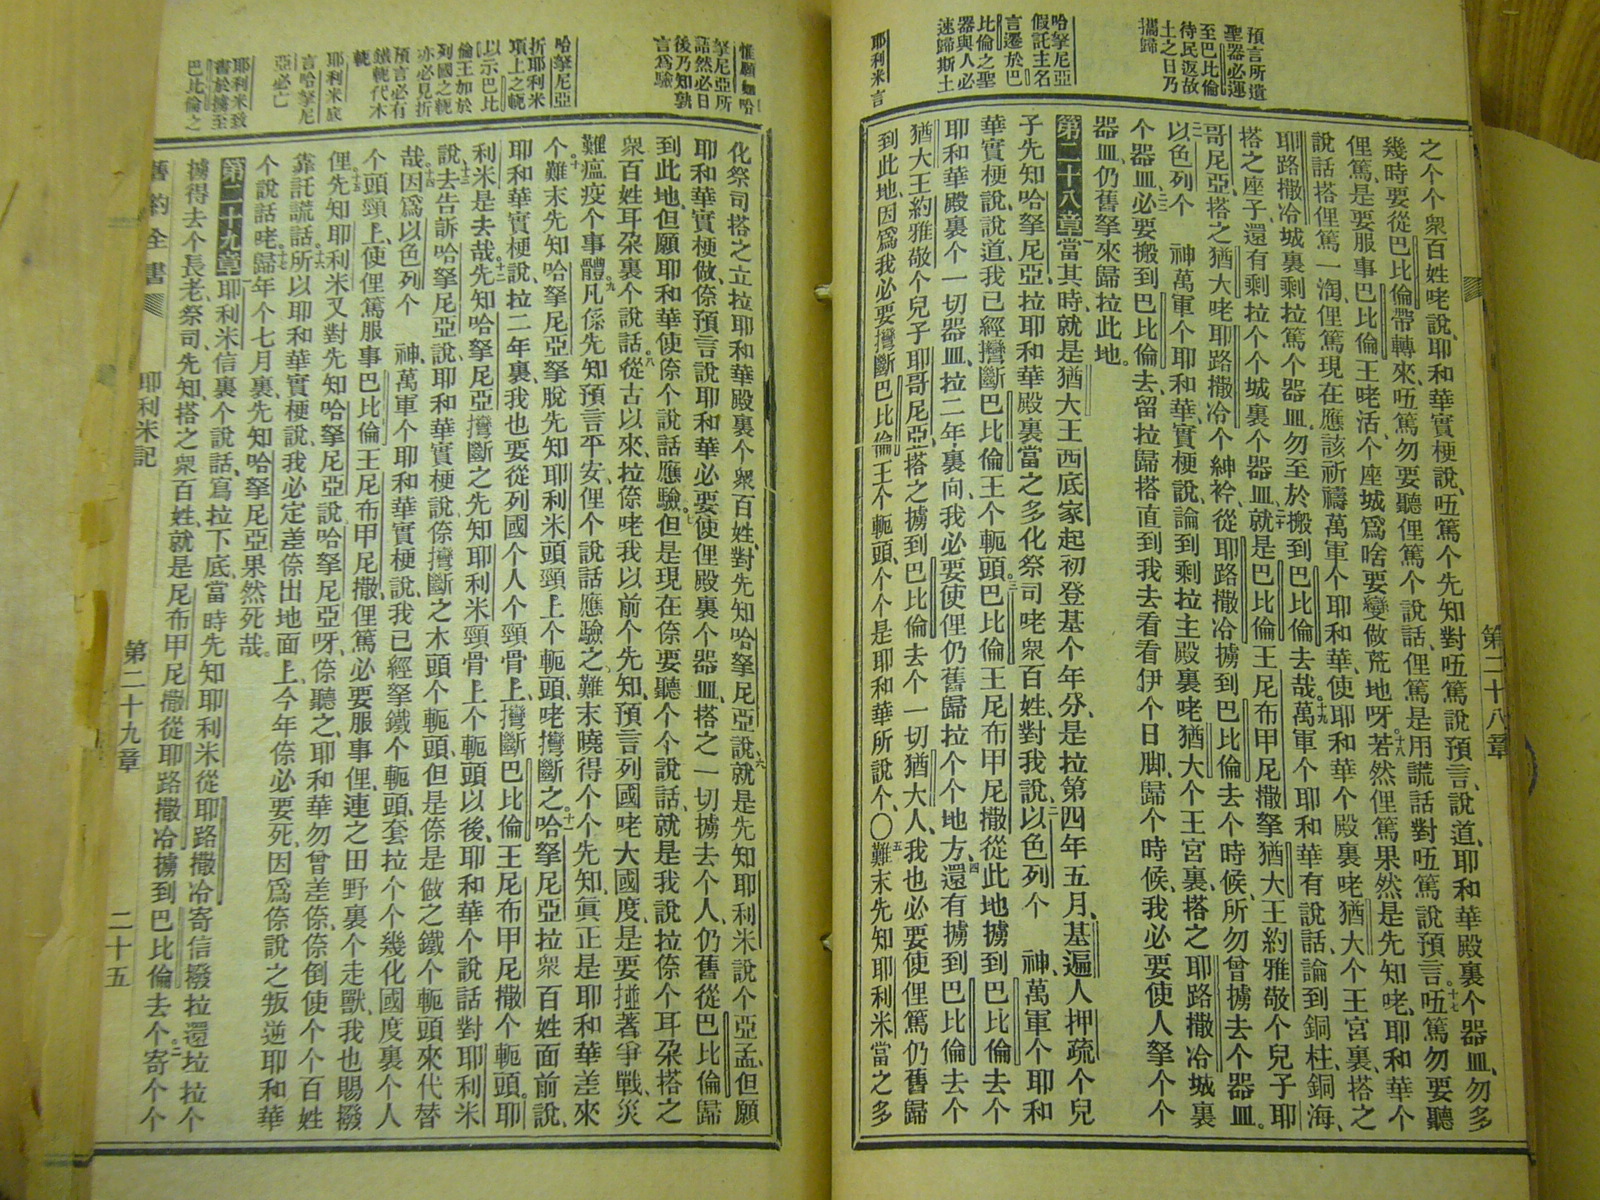 預言所遺
聖器必運
至巴比倫
待民返故
土之日乃
攜歸
哈拏尼亞
假託主名
言遷於巴
比倫之聖
器與人必
速歸斯土
耶利米言
第二十八章
之个个衆百姓咾說、耶和華實梗說、㕶篤个先知對㕶篤說預言、說道、耶和華殿裏个器皿、勿多
幾時要從巴比倫帶轉來、㕶篤勿要聽俚篤个說話、俚篤是用謊話對㕶篤說預言。十七㕶篤勿要聽
俚篤、是要服事巴比倫王咾活、个座城爲啥要變做荒地呀。十八若然俚篤果然是先知咾、耶和華个
說話搭俚篤一淘、俚篤現在應該祈禱萬軍个耶和華、使耶和華个殿裏咾猶大个王宮裏、搭之
耶路撒冷城裏剩拉篤个器皿、勿至於搬到巴比倫去哉。十九萬軍个耶和華有說話、論到銅柱、銅海、
搭之座子、還有剩拉个个城裏个器皿、二十就是巴比倫王尼布甲尼撒拏猶大王約雅敬个兒子耶
哥尼亞、搭之猶大咾耶路撒冷个紳衿、從耶路撒冷擄到巴比倫去个時候、所勿曾擄去个器皿。
二一以色列个　神萬軍个耶和華、實梗說、論到剩拉主殿裏咾猶大个王宮裏、搭之耶路撒冷城裏
个器皿、二二必要搬到巴比倫去、留拉歸搭直到我去看看伊个日脚、歸个時候、我必要使人拏个个
器皿、仍舊拏來歸拉此地。
第二十八章一當其時、就是猶大王西底家起初登基个年分、是拉第四年五月、基遍人押疏个兒
子先知哈拏尼亞、拉耶和華殿裏、當之多化祭司咾衆百姓、對我說、二以色列个　神、萬軍个耶和
華實梗說、說道、我已經攣斷巴比倫王个軛頭。三巴比倫王尼布甲尼撒從此地擄到巴比倫去个
耶和華殿裏个一切器皿、拉二年裏向、我必要使俚仍舊歸拉个个地方、四還有擄到巴比倫去个
猶大王約雅敬个兒子耶哥尼亞、搭之擄到巴比倫去个一切猶大人、我也必要使俚篤仍舊歸
到此地、因爲我必要攣斷巴比倫王个軛頭、个个是耶和華所說个、〇五難末先知耶利米當之多
惟願如哈
拏尼亞所
語然必日
後乃知孰
言爲驗
哈拏尼亞
折耶利米
項上之軛
以示巴比
倫王如於
列國之軛
亦必見折
預言必有
鐵軛代木
軛
耶利米底
言哈拏尼
亞必亡
耶利米致
書於擄至
巴比倫之
化祭司、搭之立拉耶和華殿裏个衆百姓、對先知哈拏尼亞說、六就是先知耶利米說个、亞孟、但願
耶和華實梗做、倷預言說耶和華必要使俚殿裏个器皿、搭之一切擄去个人、仍舊從巴比倫歸
到此地、但願耶和華使倷个說話應驗、七但是現在倷要聽个个說話、就是我說拉倷个耳朶搭之
衆百姓耳朶裏个說話。八從古以來、拉倷咾我以前个先知、預言列國咾大國度、是要㨃著爭戰、災
難瘟疫个事體。九凡係先知預言平安、俚个說話應驗之、難末曉得个个先知、眞正是耶和華差來
个、十難末先知哈拏尼亞拏脫先知耶利米頭頸上个軛頭、咾攣斷之。十一哈拏尼亞拉衆百姓面前說、
耶和華實梗說、拉二年裏、我也要從列國个人个頸骨上、攣斷巴比倫王尼布甲尼撒个軛頭。耶
利米是去哉、十二先知哈拏尼亞攣斷之先知耶利米頸骨上个軛頭以後、耶和華个說話對耶利米
說、十三去告訴哈拏尼亞說、耶和華實梗說、倷攣斷之木頭个軛頭、但是倷是做之鐵个軛頭來代替
哉。十四因爲以色列个　神、萬軍个耶和華實梗說、我已經拏鐵个軛頭、套拉个个幾化國度裏个人
个頭頸上、使俚篤服事巴比倫王尼布甲尼撒、俚篤必要服事俚、連之田野裏个走獸、我也賜撥
俚、十五先知耶利米又對先知哈拏尼亞說、哈拏尼亞呀、倷聽之、耶和華勿曾差倷、倷倒使个个百姓
靠託謊話。十六所以耶和華實梗說、我必定差倷出地面上、今年倷必要死、因爲倷說之叛逆耶和華
个說話咾。十七歸年个七月裏、先知哈拏尼亞果然死哉。
第二十九章一耶利米信裏个說話、寫拉下底、當時先知耶利米從耶路撒冷寄信撥拉還垃拉个
擄得去个長老、祭司、先知、搭之衆百姓、就是尼布甲尼撒從耶路撒冷擄到巴比倫去个。二寄个个
舊約全書
耶利米記
第二十九章
二十五